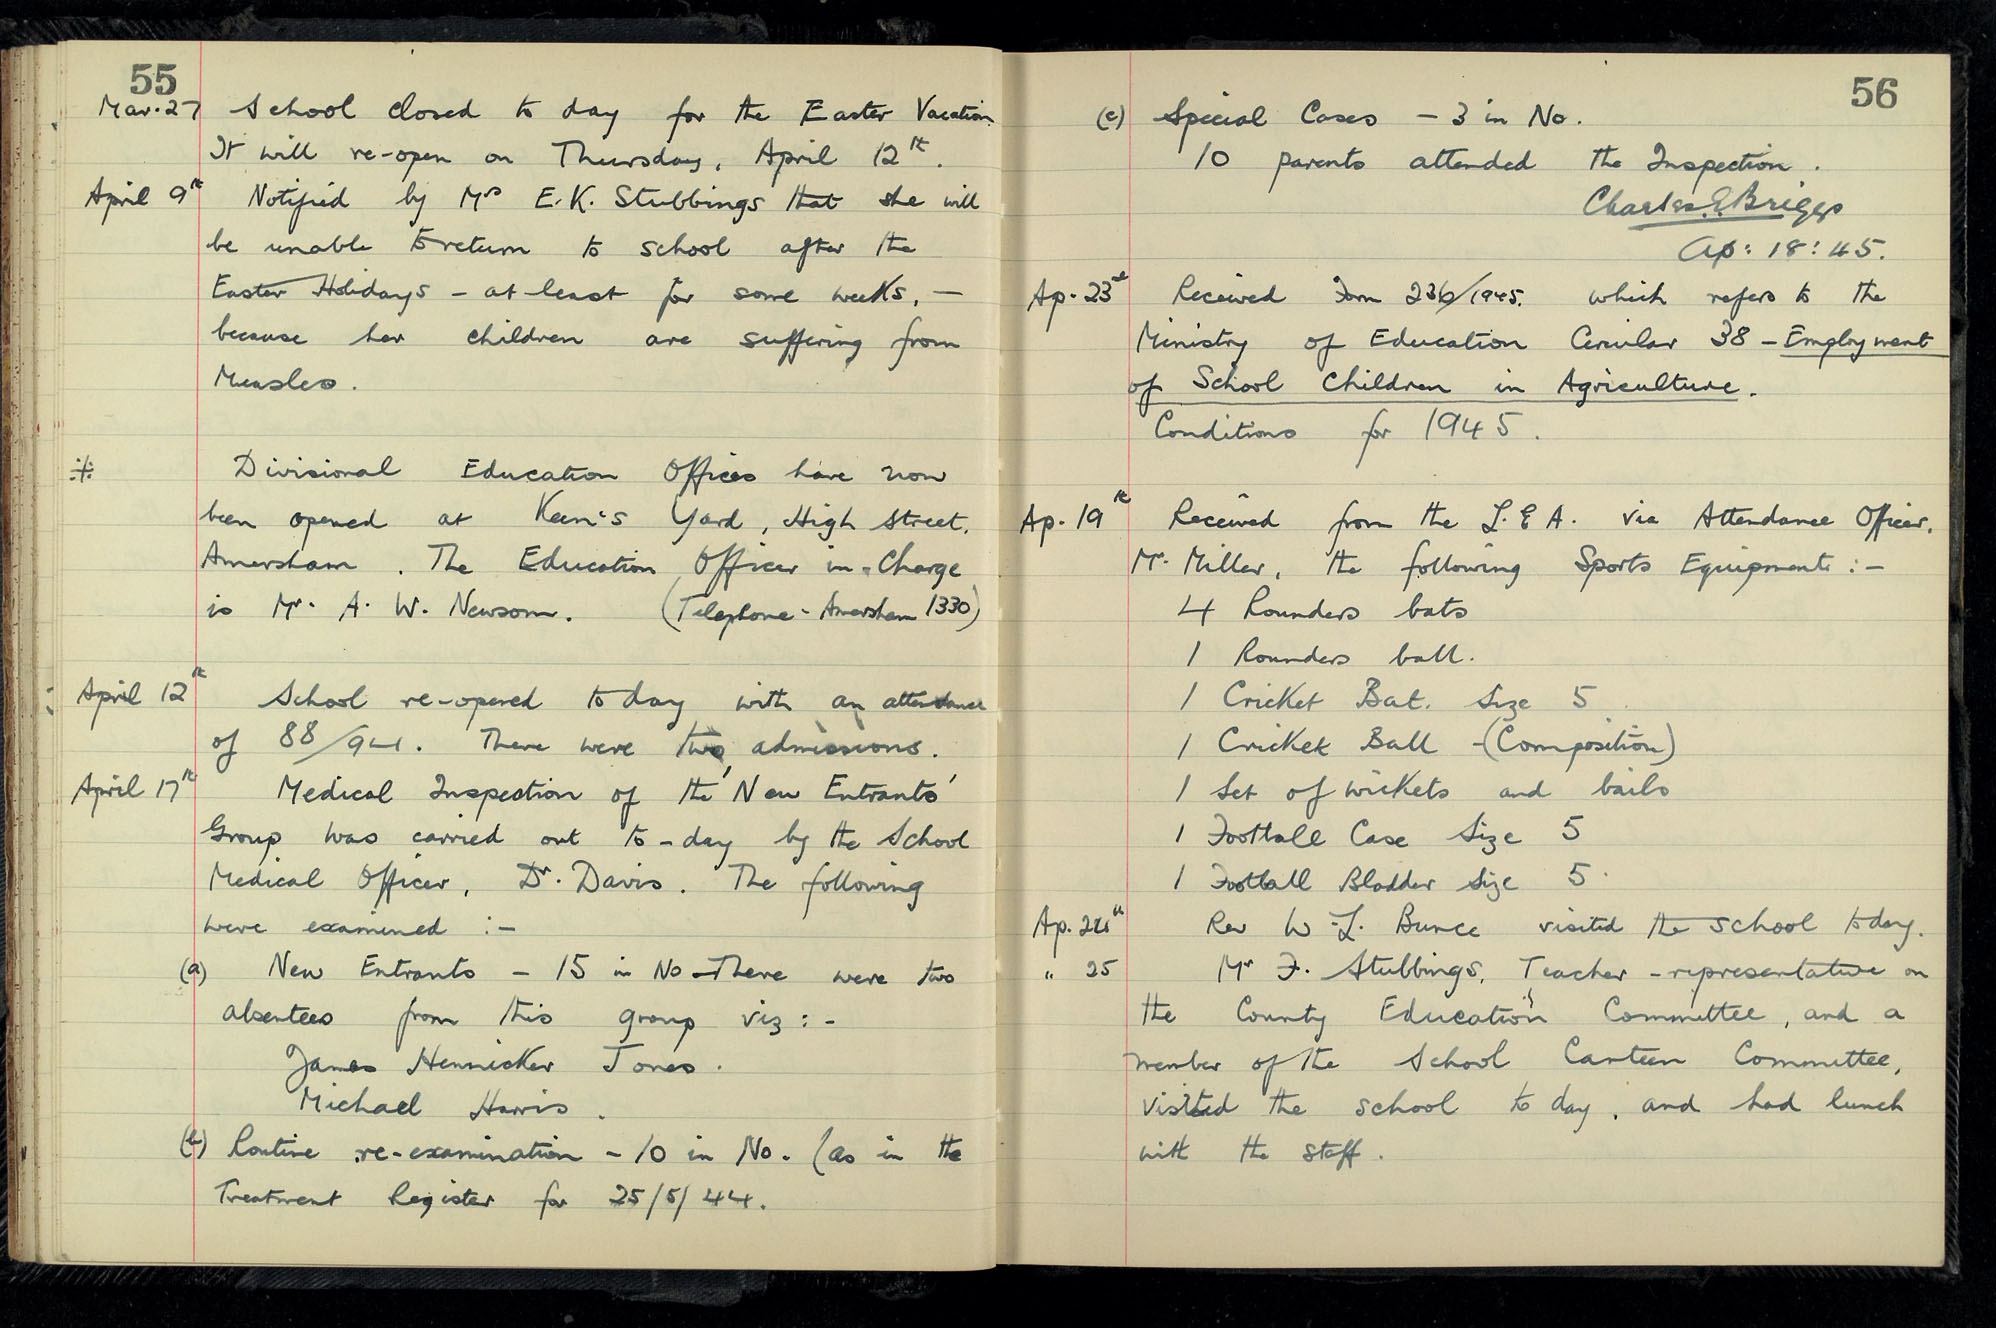 55
Mar. 27 School closed to day for the Easter Vacation.
It will re-open on Thursday, April 12th.
April 9th Notified by Mrs E.K. Stubbings that she will
be unable to return to school after the
Easter Holidays - at least for some weeks, -
because her children are suffering from
Measles.
Divisional Education Offices have now
been opened at Keen's Yard, High Street,
Amersham. The Education Officer in-Charge
is Mr. A. W. Newsom. (Telephone - Amersham 1330)
April 12th School re-opened to day with an attendance
of 88/94. There were two admissions.
April 17th Medical Inspection of the 'New Entrants'
Group was carried out to-day by the School
Medical Officer, Dr. Davis. The following
were examined :-
(a) New Entrants - 15 in No - There were two
absentees from this group viz :-
James Hennicker Jones.
Michael Harris.
(b) Routine re-examination - 10 in No. (as in the
Treatment Register for 25/5/44.
56
(c) Special Cases - 3 in No.
10 parents attended the Inspection.
Charles E Briggs
Ap: 18: 45.
Ap. 23rd Received Form 236/1945. which refers to the
Ministry of Education Circular 38 - Employment
of School Children in Agriculture.
Conditions for 1945.
Ap. 19th Received from the L.E.A. via Attendance Officer,
Mr. Miller, the following Sports Equipment :-
4 Rounders bats
1 Rounders ball.
1 Cricket Bat. Size 5
1 Cricket Ball - (Composition)
1 Set of wickets and bails
1 Football Case Size 5
1 Football Bladder Size 5.
Ap. 24th Rev W. L. Bunce visited the school today.
" 25 Mr F. Stubbings, Teacher - representative on
the County Education Committee, and a
member of the School Canteen Committee,
visited the school to day, and had lunch
with the staff.